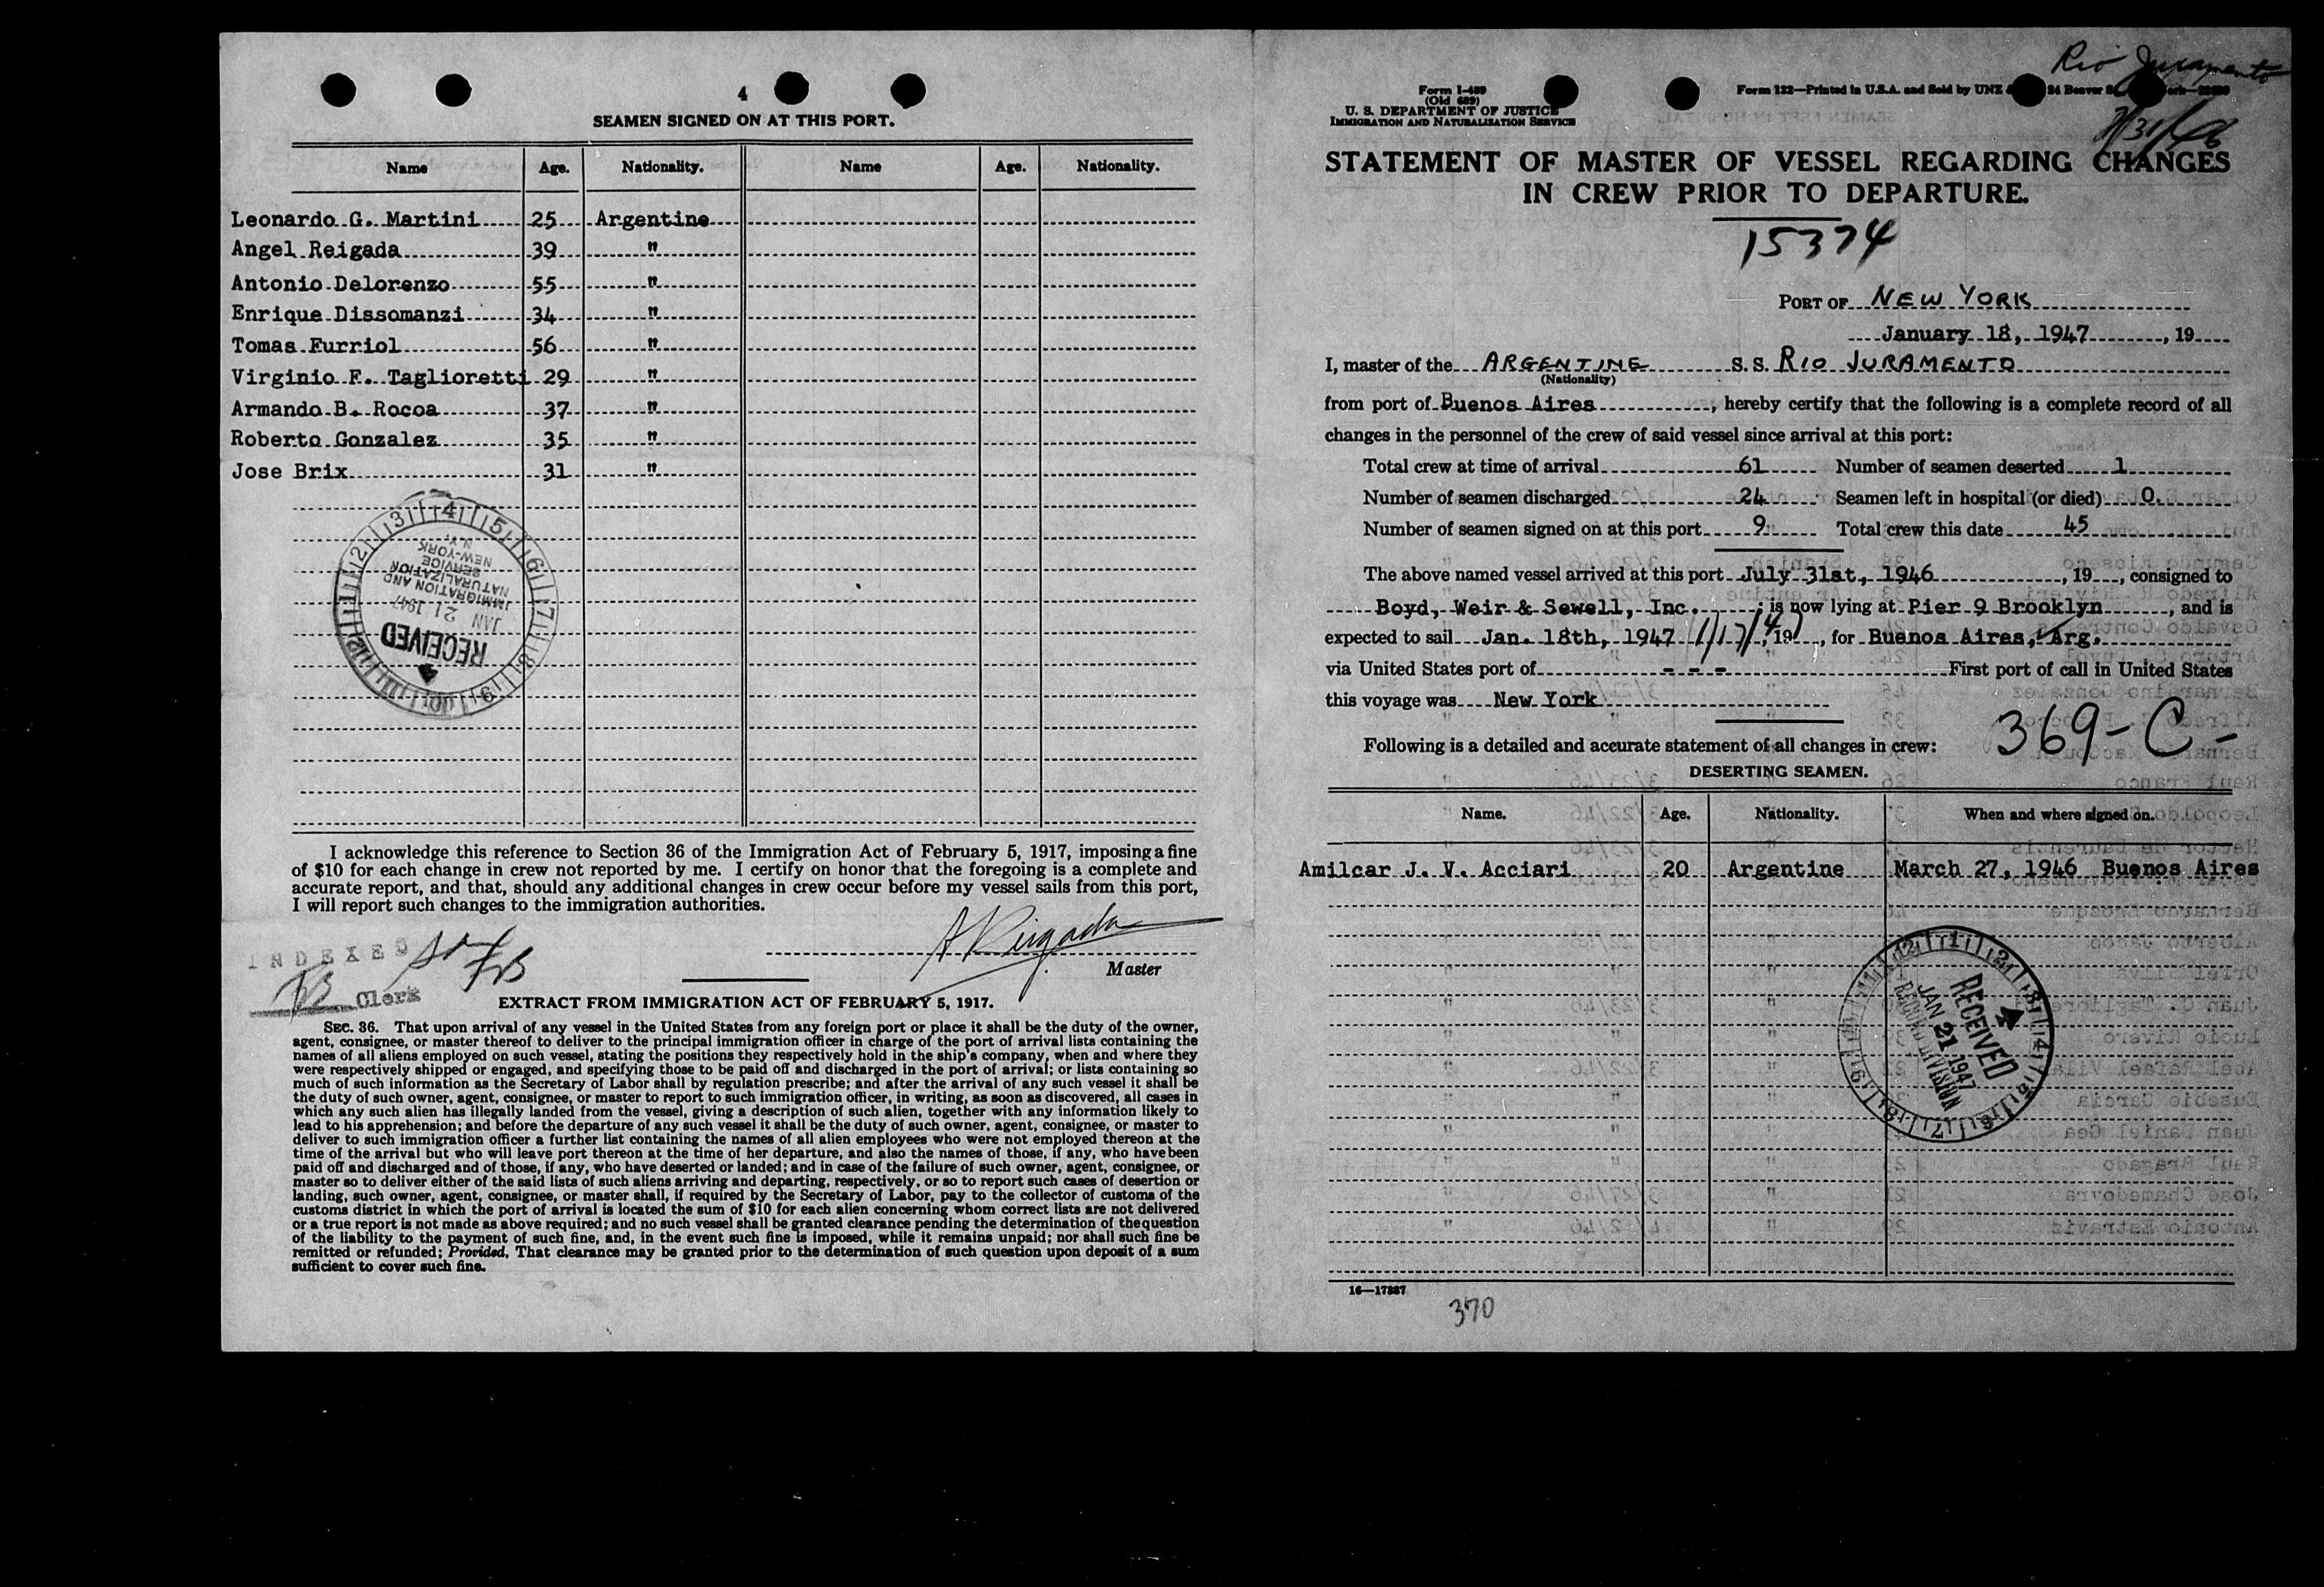 4
SEAMEN SIGNED ON AT THIS PORT.
Name Age. Nationality. Name Age. Nationality.
Leonardo G. Martini 25 Argentine
Angel Reigada 39 "
Antonio Delorenzo 55 "
Enrique Dissomanzi 34 "
Tomas Furriol 56 "
Virginio F. Taglioretti 29 "
Armando B. Rocoa 37 "
Roberto Gonzalez 35 "
Jose Brix 31 "
IMMIGRATION AND
NATURALIZATION
SERVICE
NEW-YORK
N.Y.
JAN 21 1947
RECEIVED
I acknowledge this reference to Section 36 of the Immigration Act of February 5, 1917, imposing a fine
of $10 for each change in crew not reported by me. I certify on honor that the foregoing is a complete and
accurate report, and that, should any additional changes in crew occur before my vessel sails from this port,
I will report such changes to the immigration authorities.
INDEXED
Clerk
Master
EXTRACT FROM IMMIGRATION ACT OF FEBRUARY 5, 1917.
SEC. 36. That upon arrival of any vessel in the United States from any foreign port or place it shall be the duty of the owner,
agent, consignee, or master thereof to deliver to the principal immigration officer in charge of the port of arrival lists containing the
names of all aliens employed on such vessel, stating the positions they respectively hold in the ship's company, when and where they
were respectively shipped or engaged, and specifying those to be paid off and discharged in the port of arrival; or lists containing so
much of such information as the Secretary of Labor shall by regulation prescribe; and after the arrival of any such vessel it shall be
the duty of such owner, agent, consignee, or master to report to such immigration officer, in writing, as soon as discovered, all cases in
which any such alien has illegally landed from the vessel, giving a description of such alien, together with any information likely to
lead to his apprehension; and before the departure of any such vessel it shall be the duty of such owner, agent, consignee, or master to
deliver to such immigration officer a further list containing the names of all alien employees who were not employed thereon at the
time of the arrival but who will leave port thereon at the time of her departure, and also the names of those, if any, who have been
paid off and discharged and of those, if any, who have deserted or landed; and in case of the failure of such owner, agent, consignee, or
master so to deliver either of the said lists of such aliens arriving and departing, respectively, or so to report such cases of desertion or
landing, such owner, agent, consignee, or master shall, if required by the Secretary of Labor, pay to the collector of customs of the
customs district in which the port of arrival is located the sum of $10 for each alien concerning whom correct lists are not delivered
or a true report is not made as above required; and no such vessel shall be granted clearance pending the determination of the question
of the liability to the payment of such fine, and, in the event such fine is imposed, while it remains unpaid; nor shall such fine be
remitted or refunded; Provided, That clearance may be granted prior to the determination of such question upon deposit of a sum
sufficient to cover such fine.
Rio Juramento
7/31/46
Form I-489
(Old 689)
U. S. DEPARTMENT OF JUSTICE
IMMIGRATION AND NATURALIZATION SERVICE
Form 122—Printed in U.S.A. and Sold by UNZ 24 Beaver
STATEMENT OF MASTER OF VESSEL REGARDING CHANGES
IN CREW PRIOR TO DEPARTURE.
15374
PORT OF NEW YORK
January 18, 1947, 19
I, master of the ARGENTINE S. S. RIO JURAMENTO
(Nationality)
from port of Buenos Aires, hereby certify that the following is a complete record of all
changes in the personnel of the crew of said vessel since arrival at this port:
Total crew at time of arrival 61 Number of seamen deserted 1
Number of seamen discharged 24 Seamen left in hospital (or died) 0.
Number of seamen signed on at this port 9 Total crew this date 45
The above named vessel arrived at this port July 31st, 1946, 19, consigned to
Boyd, Weir & Sewell, Inc.; is now lying at Pier 9 Brooklyn, and is
expected to sail Jan. 18th, 1947 1/17/47, 19, for Buenos Aires, Arg.
via United States port of - - - First port of call in United States
this voyage was New York
369-C-
Following is a detailed and accurate statement of all changes in crew:
DESERTING SEAMEN.
Name. Age. Nationality. When and where signed on.
Amilcar J. V. Acciari 20 Argentine March 27, 1946 Buenos Aires
RECEIVED
JAN 21 1947
RECORD DIVISION
16—17387
370